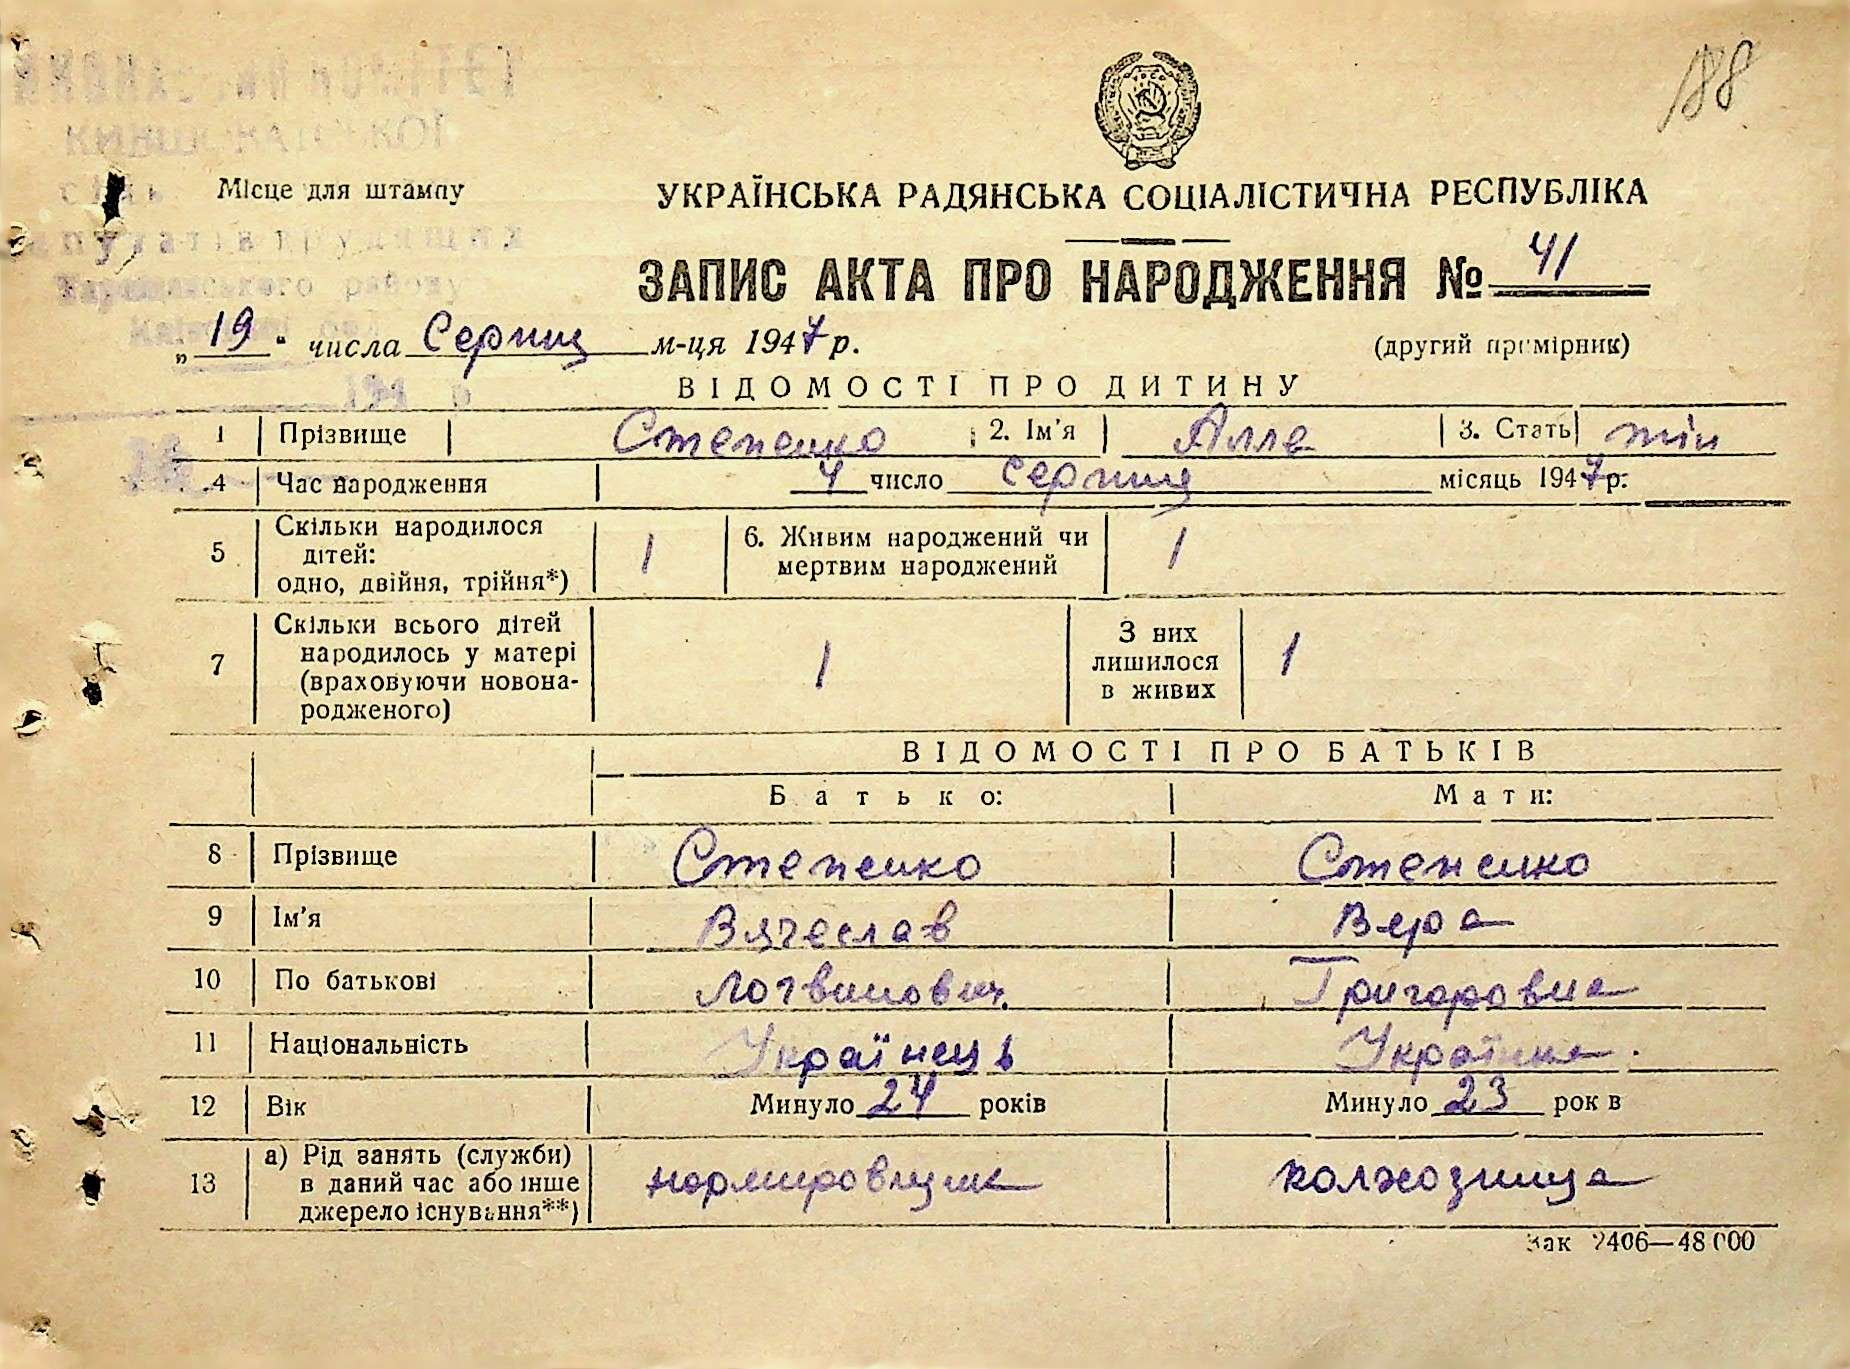 188
КОМІТЕТ
Місце для штампу
депутатів трудящих
району
УКРАЇНСЬКА РАДЯНСЬКА СОЦІАЛІСТИЧНА РЕСПУБЛІКА
ЗАПИС АКТА ПРО НАРОДЖЕННЯ № 41
„19“ числа Серпня м-ця 1947 р.
(другий примірник)
ВІДОМОСТІ ПРО ДИТИНУ
1 Прізвище Степенко 2. Ім'я Алла 3. Стать жін
4 Час народження 4 число серпня місяць 1947 р.
5 Скільки народилося дітей: одно, двійня, трійня*) 1 6. Живим народжений чи мертвим народжений 1
7 Скільки всього дітей народилось у матері (враховуючи новонародженого) 1 З них лишилося в живих 1
ВІДОМОСТІ ПРО БАТЬКІВ
Батько: Мати:
8 Прізвище Степенко Степенко
9 Ім'я Вячеслав Вера
10 По батькові Логвинович Григоровна
11 Національність Українець Українка
12 Вік Минуло 24 років Минуло 23 рок в
13 а) Рід занять (служби) в даний час або інше джерело існування**) нормировщик колхозница
Зак 2406—48000